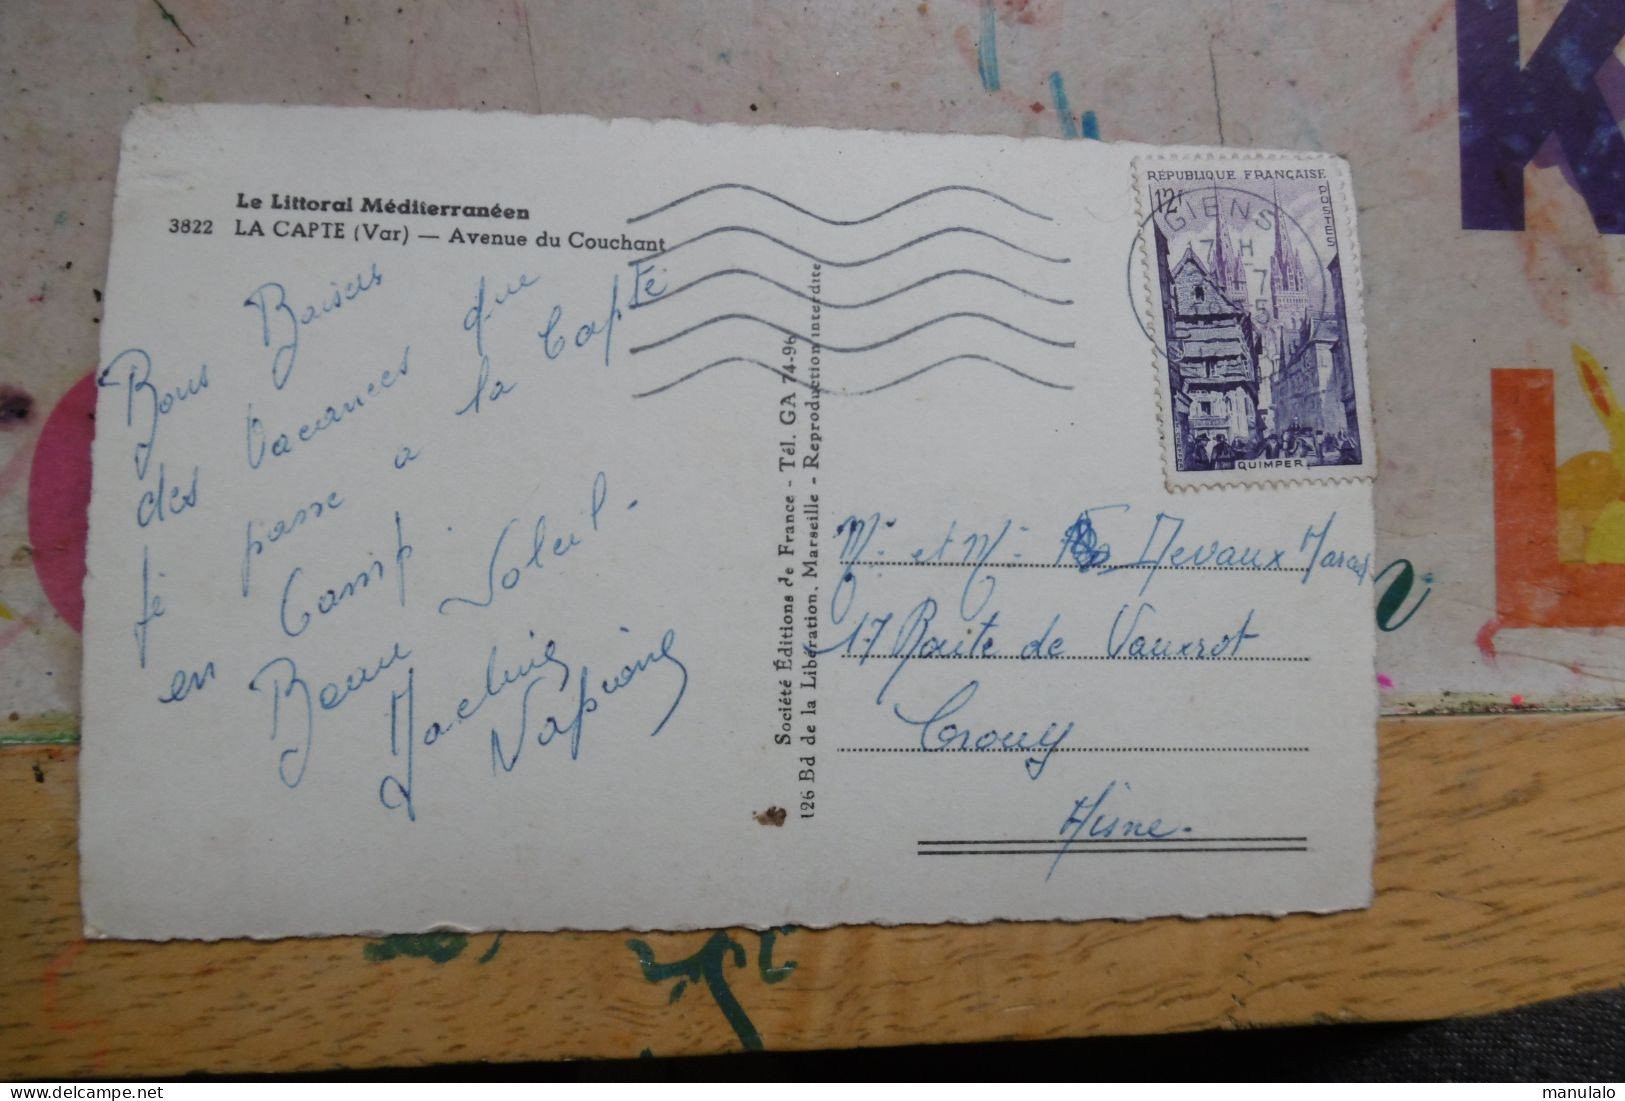 Le Littoral Méditerranéen
3822 LA CAPTE (Var) — Avenue du Couchant
Bons Baisers
des Vacances que
je passe a la Capte
en Camp.
Beau Soleil.
Société Éditions de France - Tél. GA 74-96
126 Bd de la Libération, Marseille - Reproduction interdite
RÉPUBLIQUE FRANÇAISE
12F
POSTES
GIENS
17 H
7
5
QUIMPER
Mr et Mme Devaux
17 Route de Vauxrot
Crouy
Aisne.
K
L
manulalo